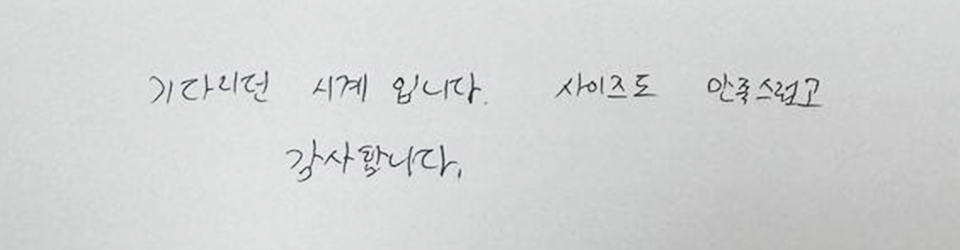 기다리던 시계 입니다. 사이즈도 만족스럽고
감사합니다.